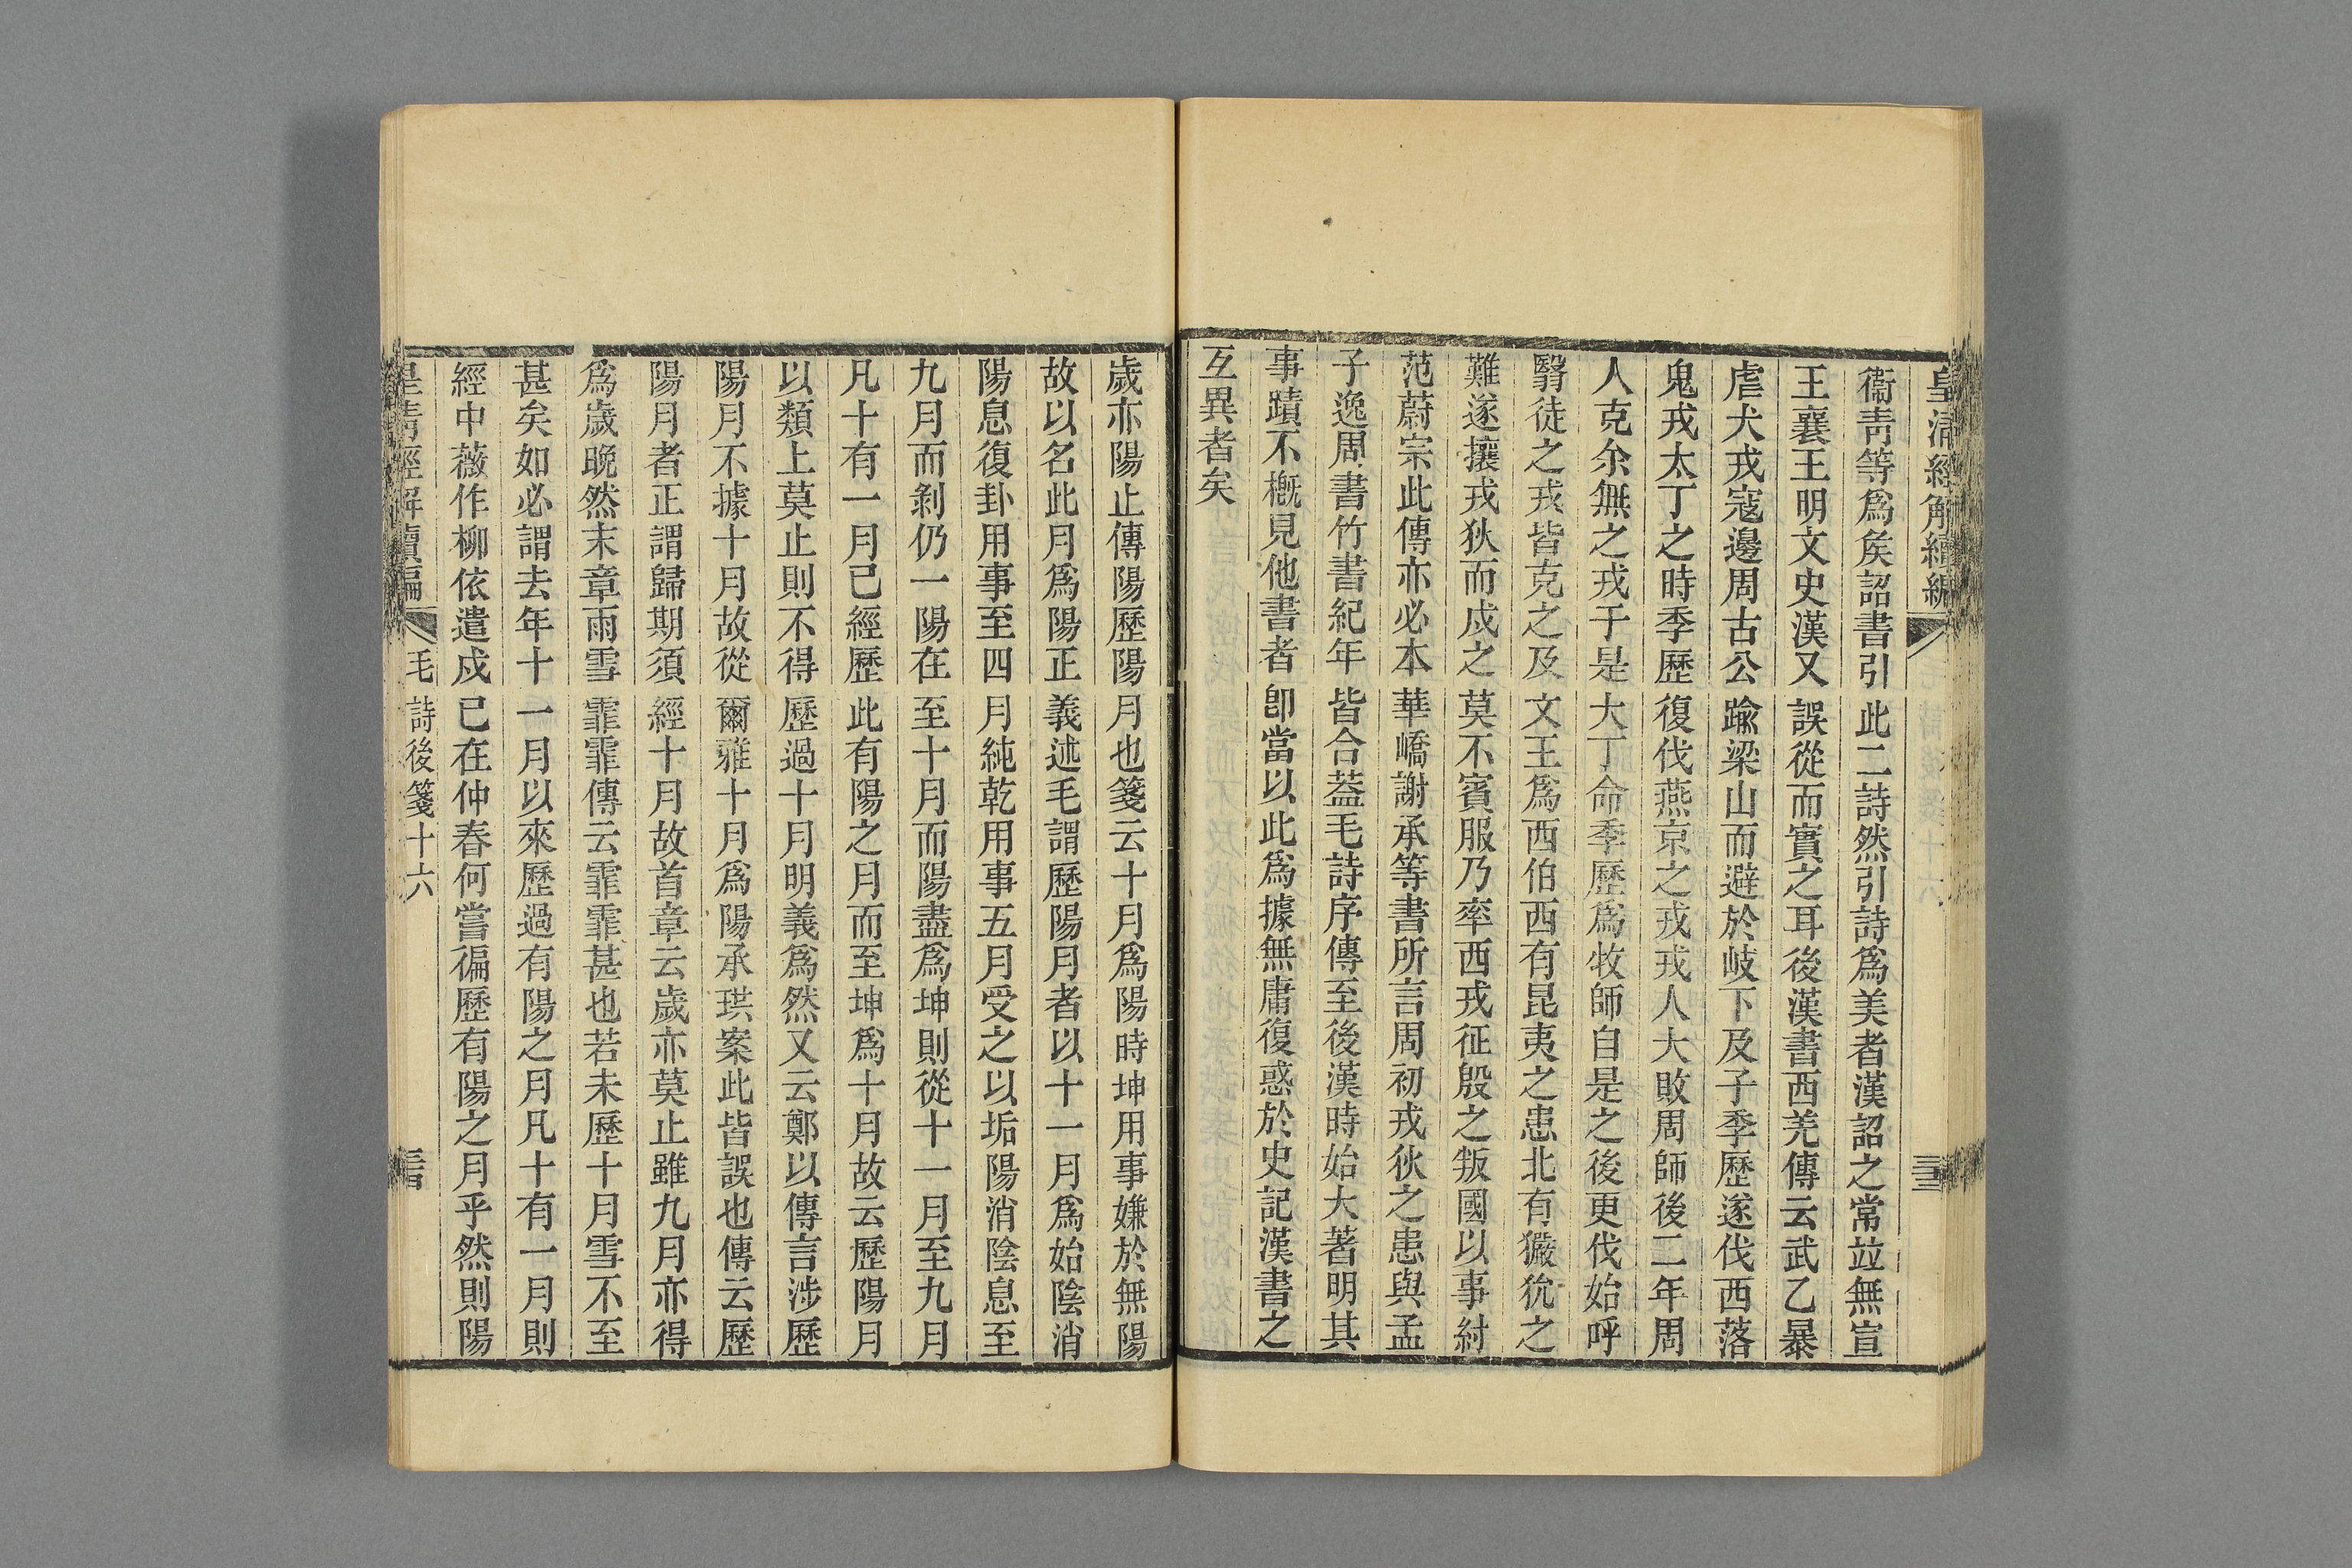 皇清經解續編
三十三
衞靑等爲矦詔書引此二詩然引詩爲美者漢詔之常竝無宣
王襄王明文史漢又誤從而實之耳後漢書西羌傳云武乙暴
虐犬戎寇邊周古公踰梁山而避於岐下及子季歷遂伐西落
鬼戎太丁之時季歷復伐燕京之戎戎人大敗周師後二年周
人克余無之戎于是大丁命季歷爲牧師自是之後更伐始呼
翳徒之戎皆克之及文王爲西伯西有昆夷之患北有玁狁之
難遂攘戎狄而戍之莫不賓服乃率西戎征殷之叛國以事紂
范蔚宗此傳亦必本華嶠謝承等書所言周初戎狄之患與孟
子逸周書竹書紀年皆合蓋毛詩序傳至後漢時始大著明其
事蹟不槪見他書者卽當以此爲據無庸復惑於史記漢書之
互異者矣
歲亦陽止傳陽歷陽月也箋云十月爲陽時坤用事嫌於無陽
故以名此月爲陽正義述毛謂歷陽月者以十一月爲始陰消
陽息復卦用事至四月純乾用事五月受之以垢陽消陰息至
九月而剝仍一陽在至十月而陽盡爲坤則從十一月至九月
凡十有一月已經歷此有陽之月而至坤爲十月故云歷陽月
以類上莫止則不得歷過十月明義爲然又云鄭以傳言涉歷
陽月不據十月故從爾雅十月爲陽承珙案此皆誤也傳云歷
陽月者正謂歸期須經十月故首章云歲亦莫止雖九月亦得
爲歲晩然末章雨雪霏霏傳云霏霏甚也若未歷十月雪不至
甚矣如必謂去年十一月以來歷過有陽之月凡十有一月則
經中薇作柳依遣戍已在仲春何嘗徧歷有陽之月乎然則陽
皇清經解續編
毛詩後箋十六